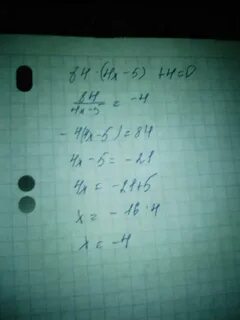 84 (4x-5) +4=0
84/4x-5 = -4
-4(4x-5)=84
4x-5=-21
4x = -21+5
x = -16 · 4
x = -4